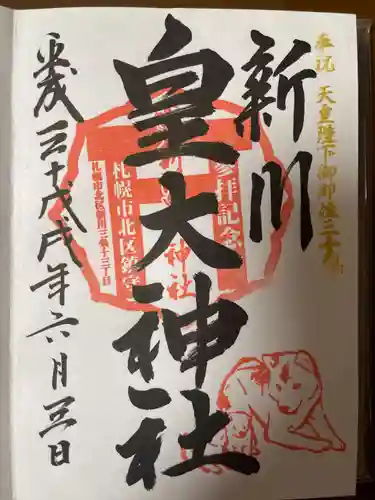 奉祝 天皇陛下御即位三十年
新川
皇大神社
参拝記念
新川皇大神社
札幌市北区鎮守
札幌市北区新川三条十三丁目
平成三十戊戌年六月三日